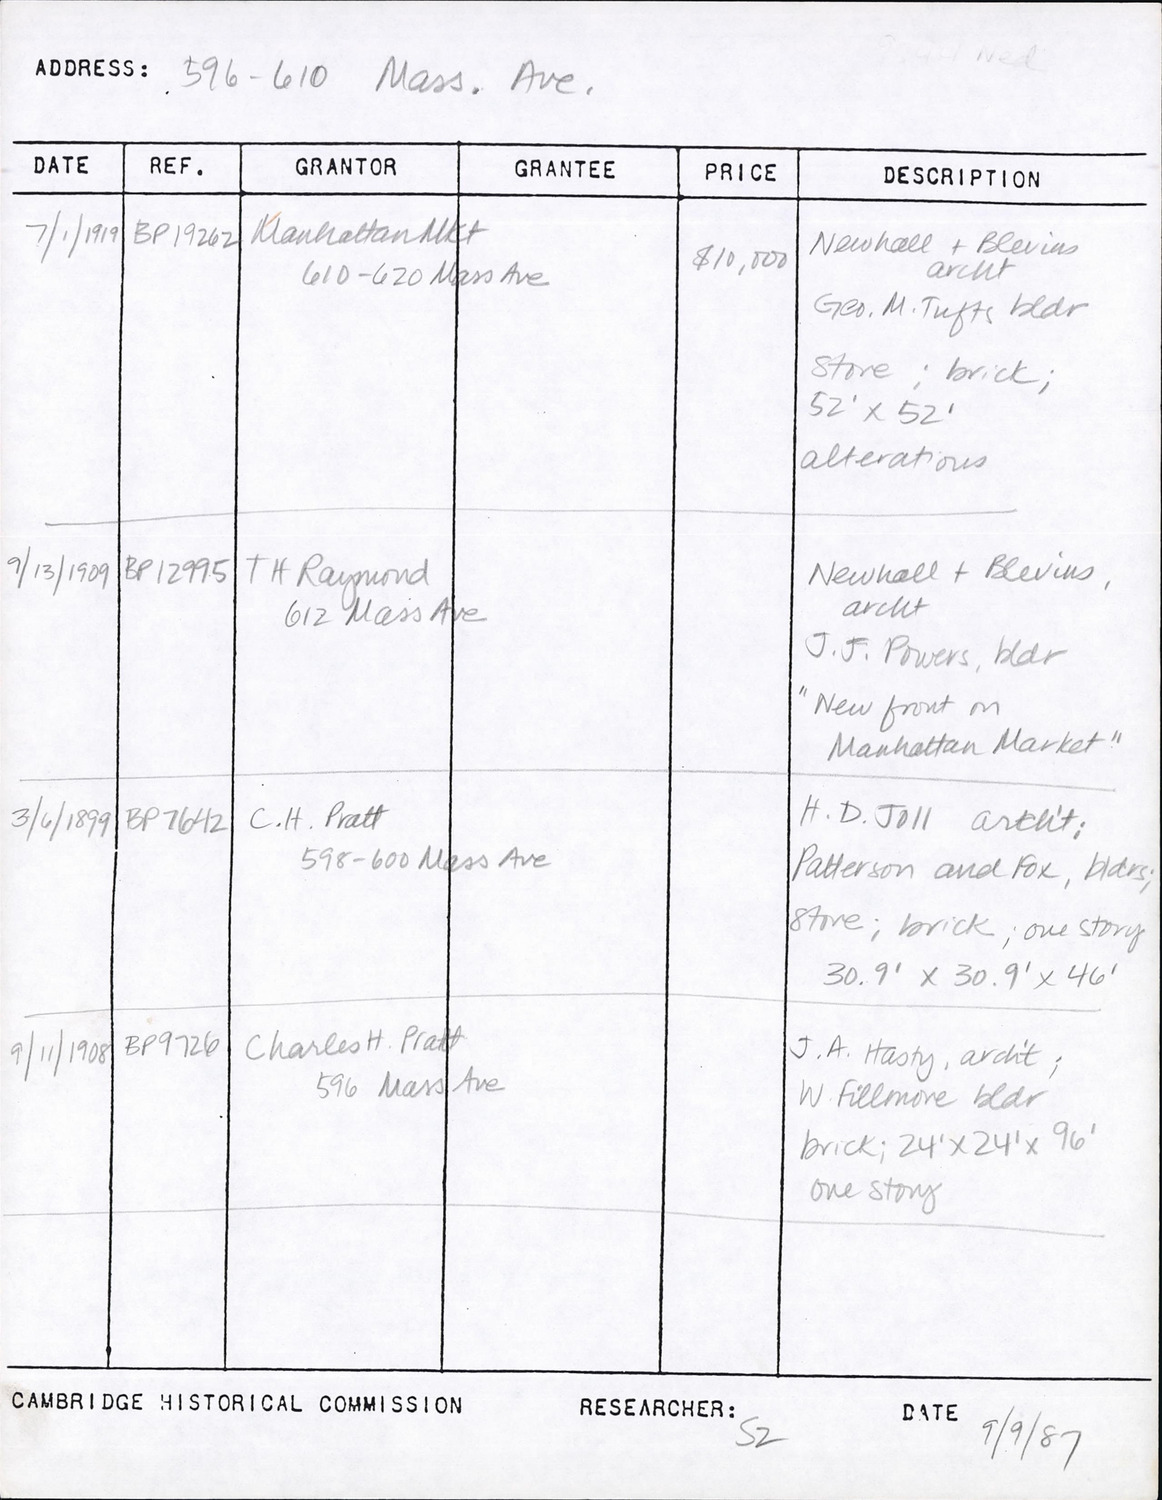 ADDRESS: 596-610 Mass. Ave.
DATE REF. GRANTOR GRANTEE PRICE DESCRIPTION
7/1/1919 BP19262 Manhattan Mkt $10,000 Newhall + Blevins
610-620 Mass Ave archt
Geo. M. Tufts bldr
store ; brick;
52' x 52'
alterations
9/13/1909 BP12995 T H Raymond Newhall + Blevins,
612 Mass Ave archt
J.F. Powers, bldr
"New front on
Manhattan Market"
3/6/1899 BP7642 C.H. Pratt H. D. Joll archt;
598-600 Mass Ave Patterson and Fox, bldrs;
store; brick; one story
30.9' x 30.9' x 46'
9/11/1908 BP9726 Charles H. Pratt J.A. Hasty, archt;
596 Mass Ave W. Fillmore bldr
brick; 24'x24'x 96'
one story
CAMBRIDGE HISTORICAL COMMISSION RESEARCHER: SZ DATE 9/9/87